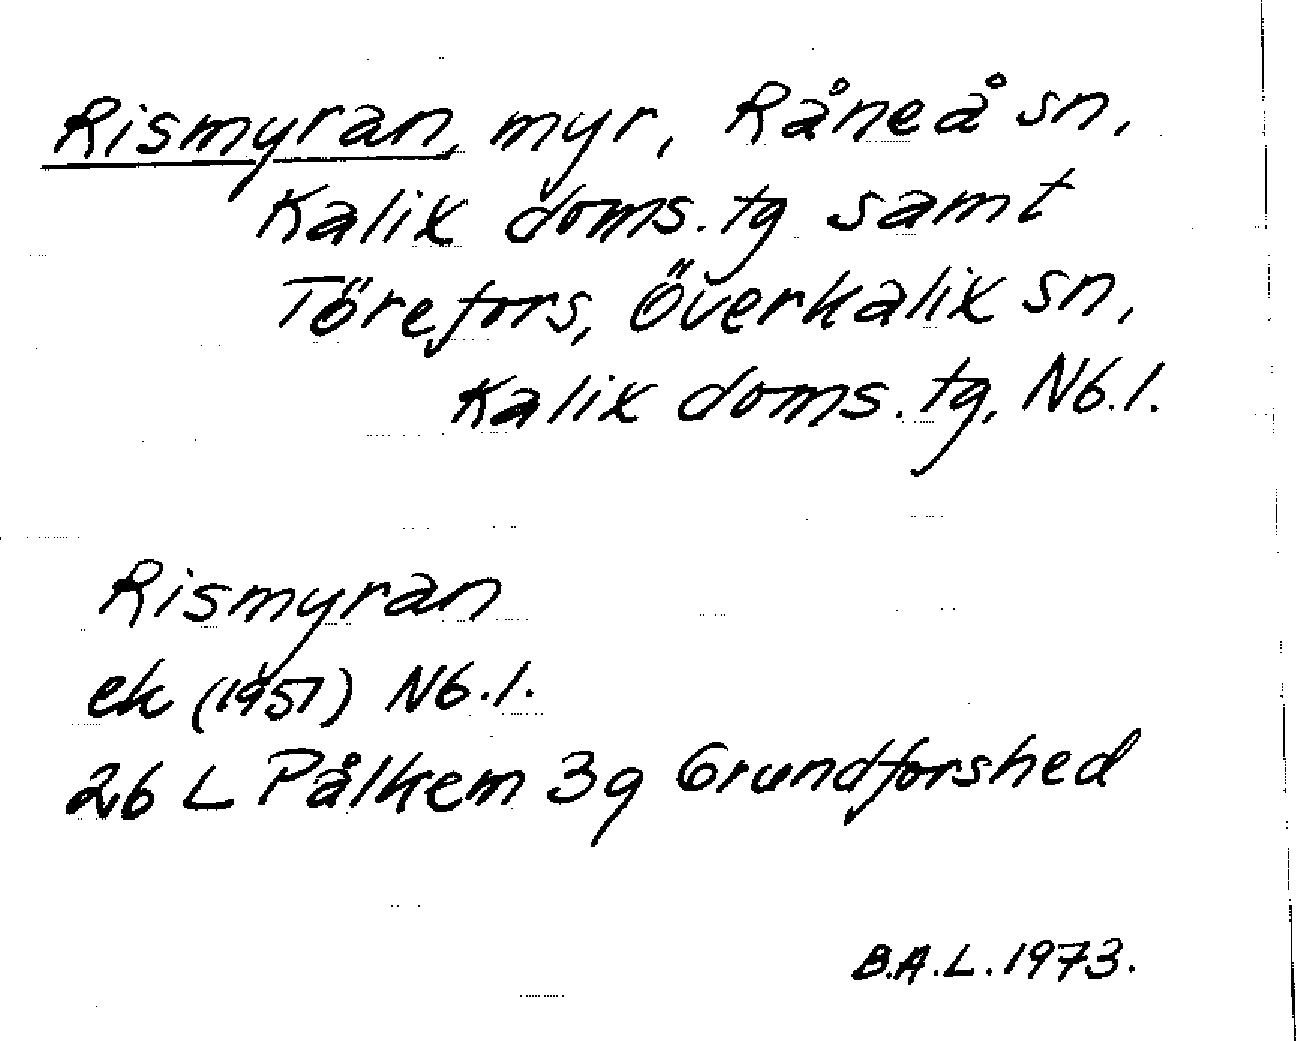 Rismyran, myr, Råneå sn,
Kalix doms. tg samt
Törefors, Överkalix sn,
Kalix doms. tg, Nb.l.
Rismyran
ek (1951) Nb.l.
26 L Pålkem 3g Grundforshed
B.A.L. 1973.